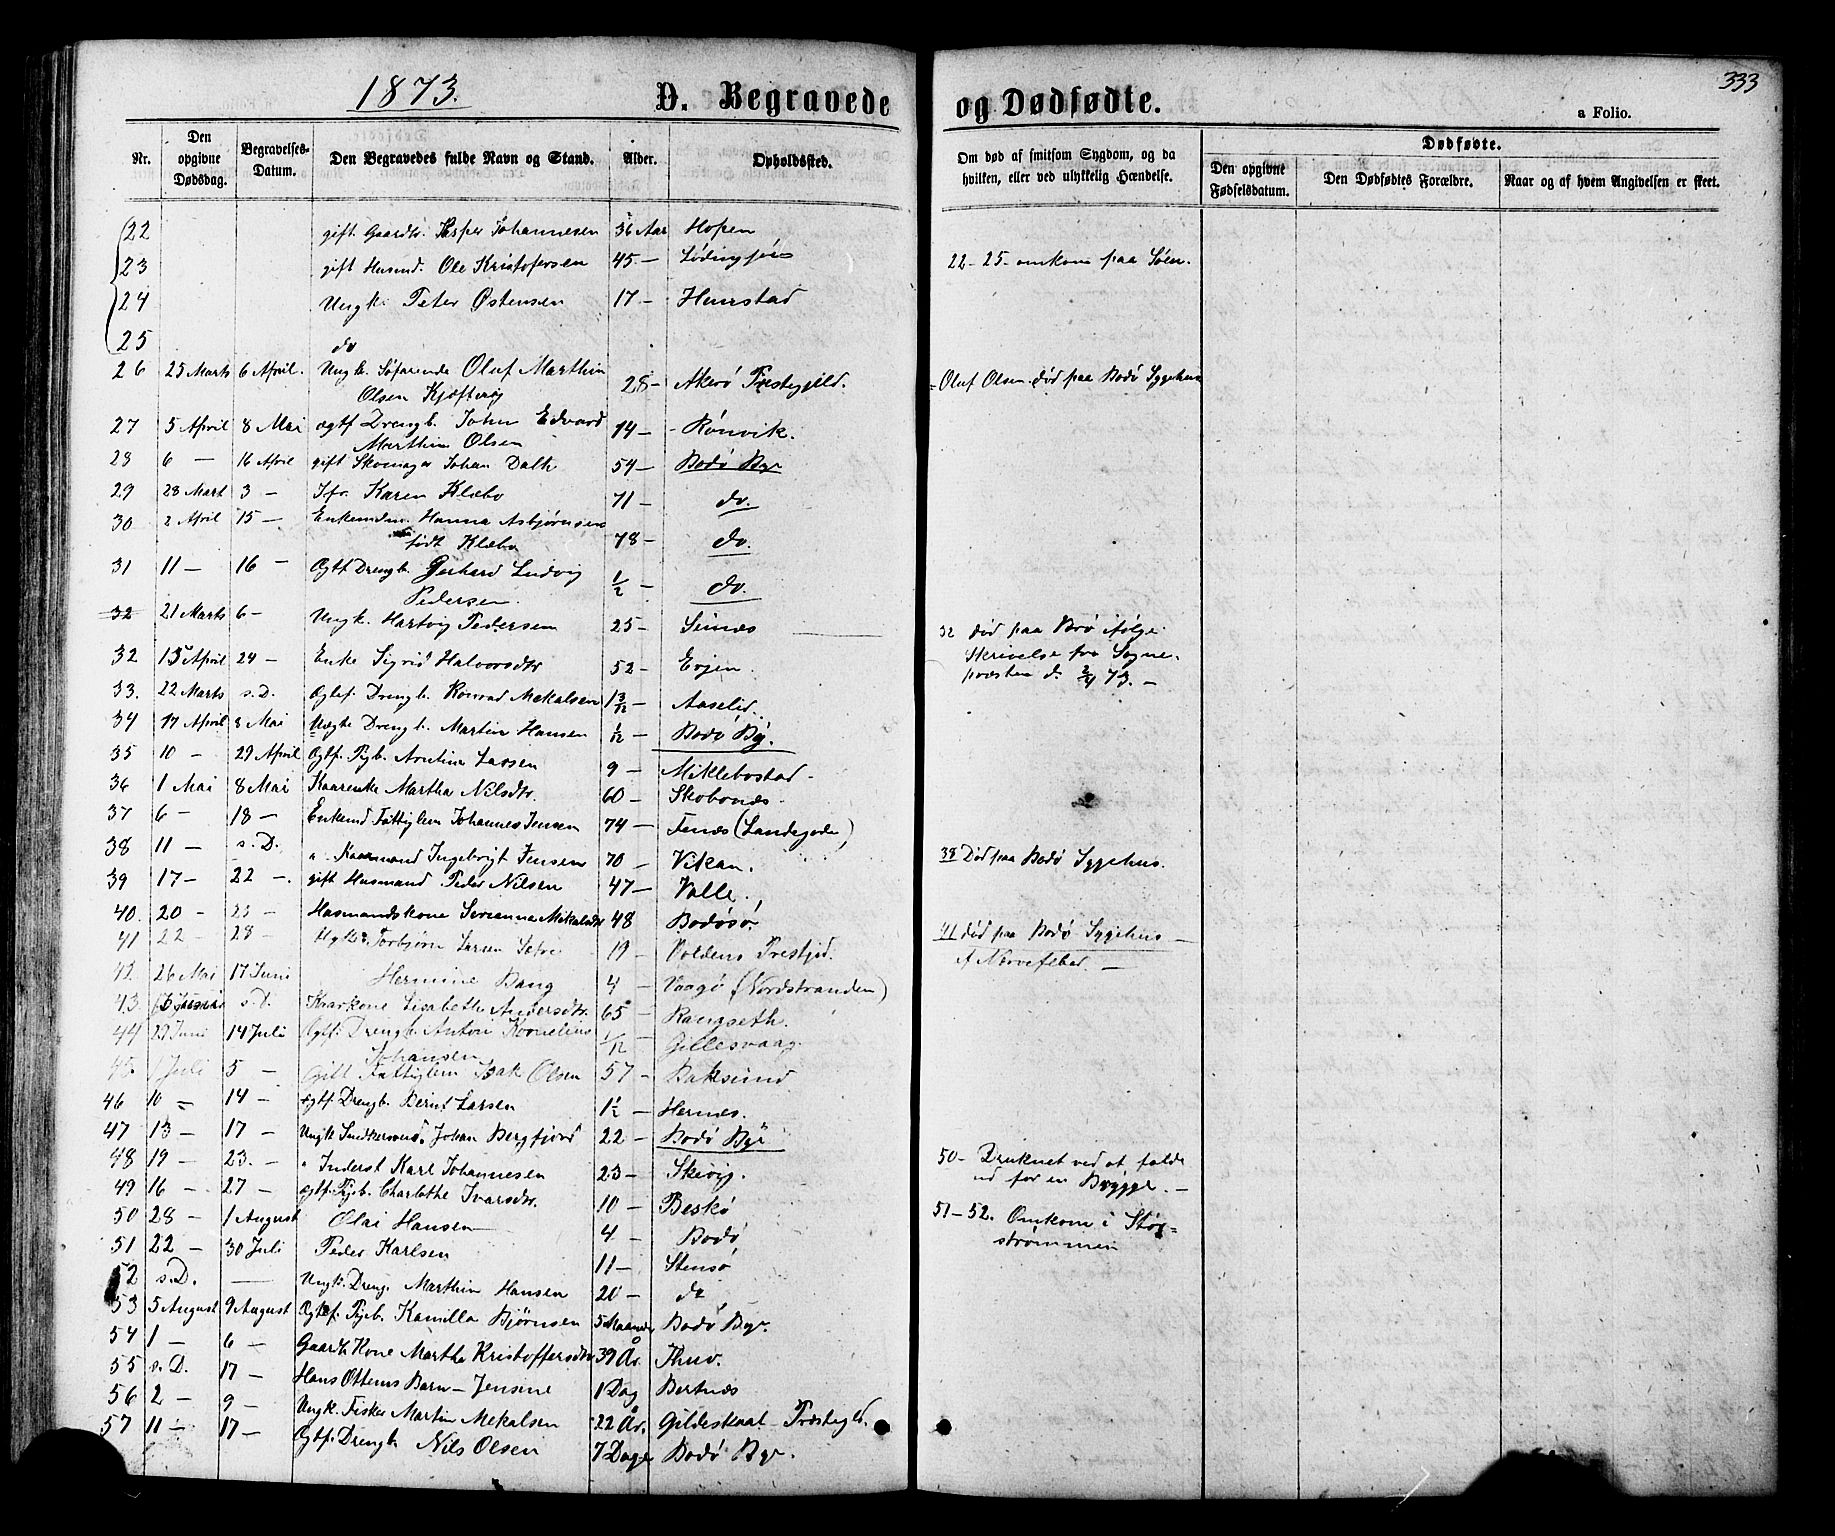 1873.
D. Begravede
og Dødfødte.
333
a Folio.
Nr.
Den opgivne Dødsdag.
Begravelses-Datum.
Den Begravedes fulde Navn og Stand.
Alder.
Opholdssted.
Om død af smitsom Sygdom, og da hvilken, eller ved ulykkelig Hændelse.
Dødfødte.
Den opgivne Fødselsdatum.
Den Dødfødtes Forældre.
Naar og af hvem Angivelsen er skeet.
22 gift. Gaardbr. Jesper Johannesen 36 Aar Hopen
23 gift Husmd. Ole Kristofersen 45 - 22-25 omkom paa Søen.
24 Ungk. Peter Østensen 17 - Hunstad
25 do
26 25 Marts 6 April. Ungk. Søfarende Oluf Marthin
Olsen 28 - Akerø Præstegjeld. Oluf Olsen død paa Bodø Sygehus
27 5 April 8 Mai ægtf Drengb. Johan Edvard
Marthin Olsen 14 - Rønvik.
28 6 - 16 April gift Skomager Johan Dalh 54 - Bodø By
29 28 Mart 3 - Jfr. Karen Klæbo 71 - do.
30 2 April 15 - Enkemdm. Hanna Asbjørnsen
født Klæbo 78 - do.
31 11 - 16 - Ægtf Drengb. Gerhard Ludvig
Pedersen. 1/2 - do.
32 21 Marts 6 - Ungk. Hartvig Pedersen 25 - Seines 32 død paa Brø ifølge
Skrivelse fra Sogne-
præsten d. 2/4 73. -
32 15 April 24 - Enke Sigrid Halvorsdtr 52 - Evjen.
33. 22 Marts s.D. Ægtef. Drengb. Konrad Mekalsen 1 3/12 - Aaselid.
34 17 April 8 Mai Uægte Drengb. Martin Hansen 1/12 - Bodø By.
35 10 - 29 April Ægtf. Pigb. Larsen 9 - Miklebostad -
36 1 Mai 8 Mai Kaarenke Martha Nilsdtr. 60 - Skobonæs -
37 6 - 18 - Enkemd Fattiglem Johannes Jensen 74 - Fenæs (Landegode)
38 11 - s.D. " Kaarmand Ingebrigt Jensen 70 - Vikan. 38 Død paa Bodø Sygehus.
39 17 - 22 - gift Husmand Peder Nilsen 47 - Valle.
40. 20 - 23 - Husmandskone Serianna Mekalsdtr 48 Bodøsø.
41 22 - 28 - Torbjørn Larsen 19 - Voldens Prestejd. 41 død paa Bodø Sygehus -
af Nervefeber. -
42 26 Mai 17 Juni Hermine Bang 4 - Vaagø (Nordstranden)
43. s.D. Kaarkone Lisabeth Andersdtr. 65 - Rangseth.
44 29 Juni 14 Juli Ægtf. Drengb. Anton Kornelius
Johansen 1/12 - Gillesvaag.
45 1 Juli 5 - Gift Fattiglem Isak Olsen 57 - Baksund
46 10 - 14 - Ægtf Drengb. Bernt Larsen 1 1/2 - Hernes.
47 13 - 17 - Ungk Snedkersvend. Johan Bergfjord 22 - Bodø By
48 19 - 23. - " Inderst Karl Johannesen 23 - Skivig.
49 16 - 27 - ægtf. Pigb. Charlothe Ivarsdtr. 10 - Beskø
50 28 - 1 August Olai Hansen 4 - Bodø 50 - Druknet ved at falde
ud for en Brygge. -
51 22 - 30 Juli Peder Karlsen 11 - Stensø 51-52. Omkom i Stor-
strømmen
52 s.D. Ungk. Dreng. Marthin Hansen 20 - do
53 5 August 9 August Ægtef. Pigb. Kamilla Bjørnsen 5 Maaneder Bodø By.
54 1 - 6 - Gaardb. Kone Martha Kristoffersdtr 39 År. Thuv.
55 s.D. 17 - Hans Ottems Barn - Jensine 1 Dag Bertnæs
56 2 - 9 - Ungk. Fisker Martin Mekalsen 22 År. Gildeskaal Præstegld.
57 11 - 17 - Ægtf. Drengb. Nils Olsen 7 Dage Bodø By.